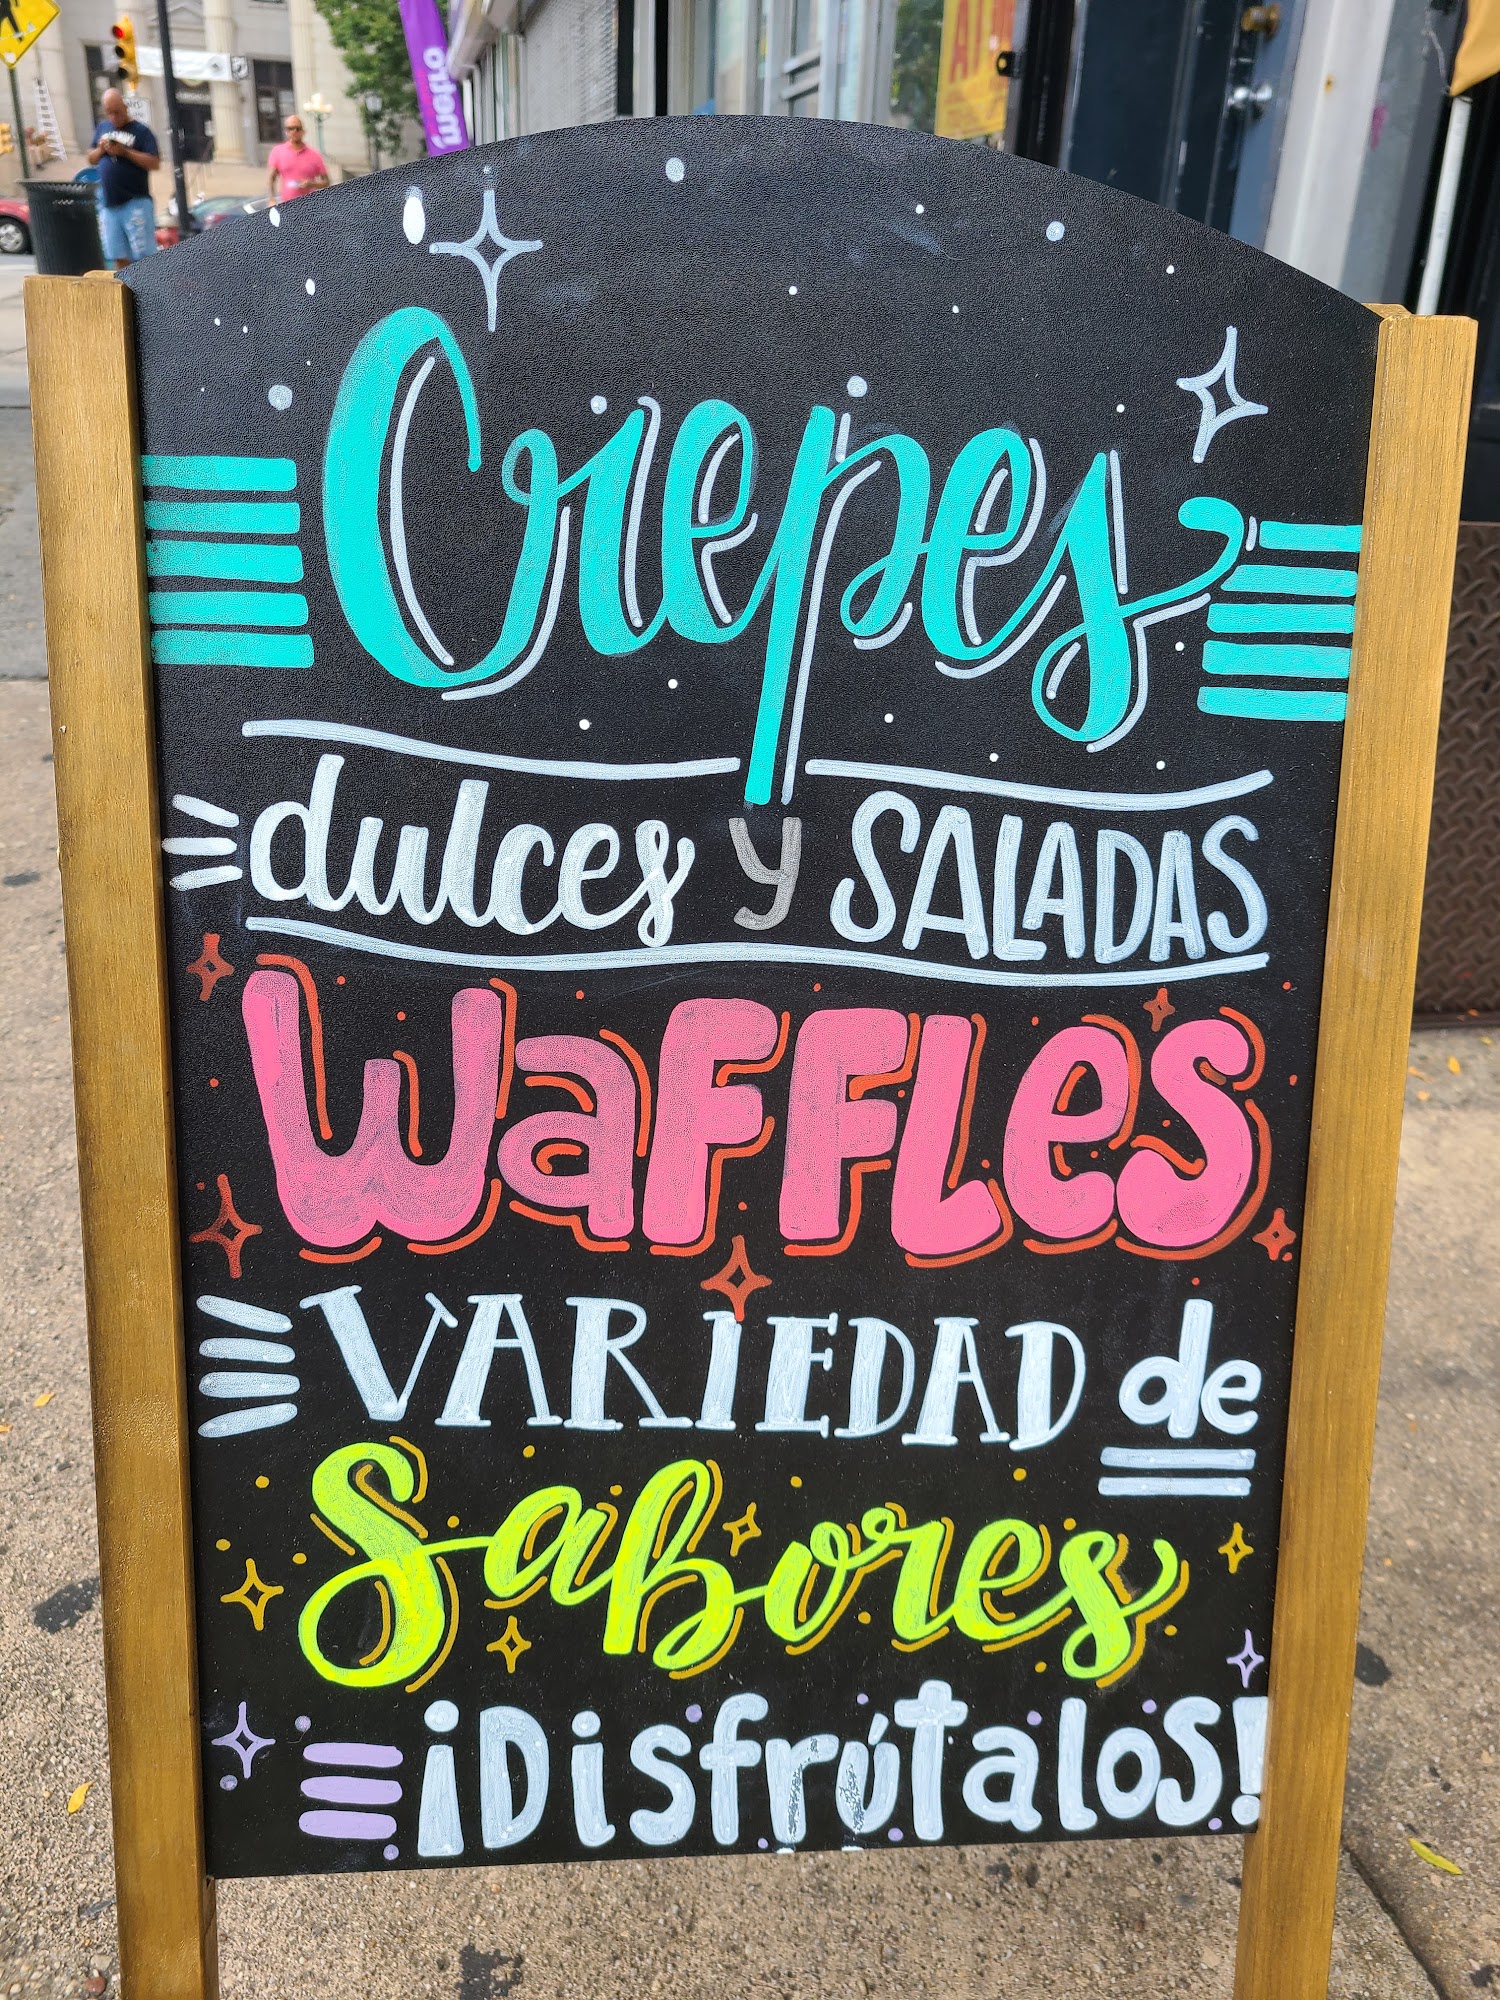 metro
Crepes
dulces y SALADAS
Waffles
VARIEDAD de
Sabores
¡Disfrútalos!